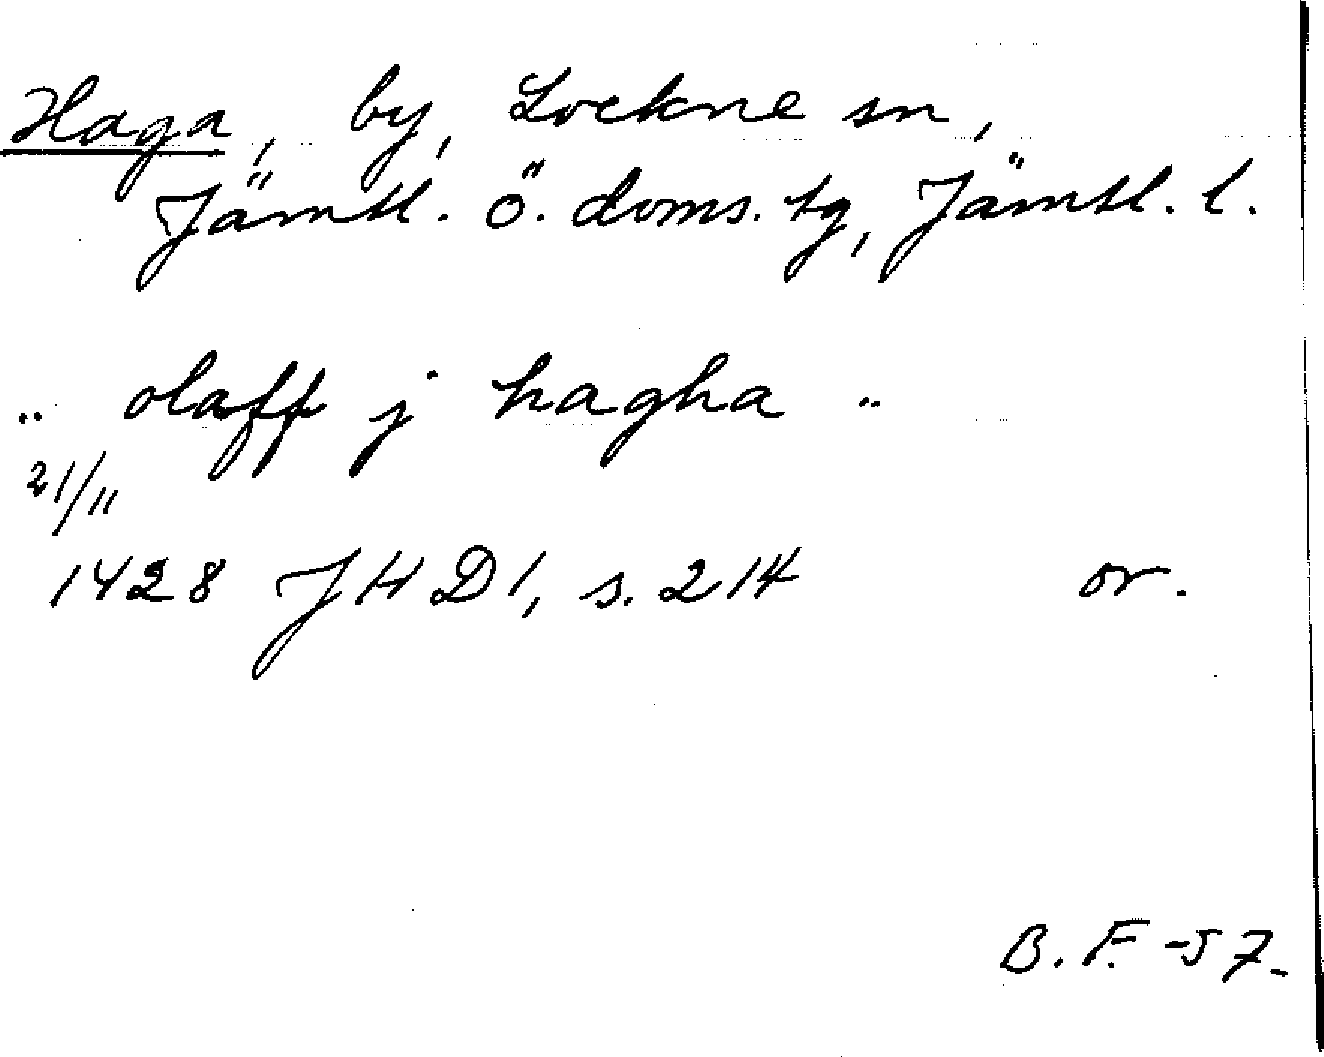 Haga, by, Lockne sn,
Jämtl. ö. doms. tg, Jämtl. l.
.. olaff j hagha ..
21/11
1428 JHD1, s. 214 or.
B. F. -57.